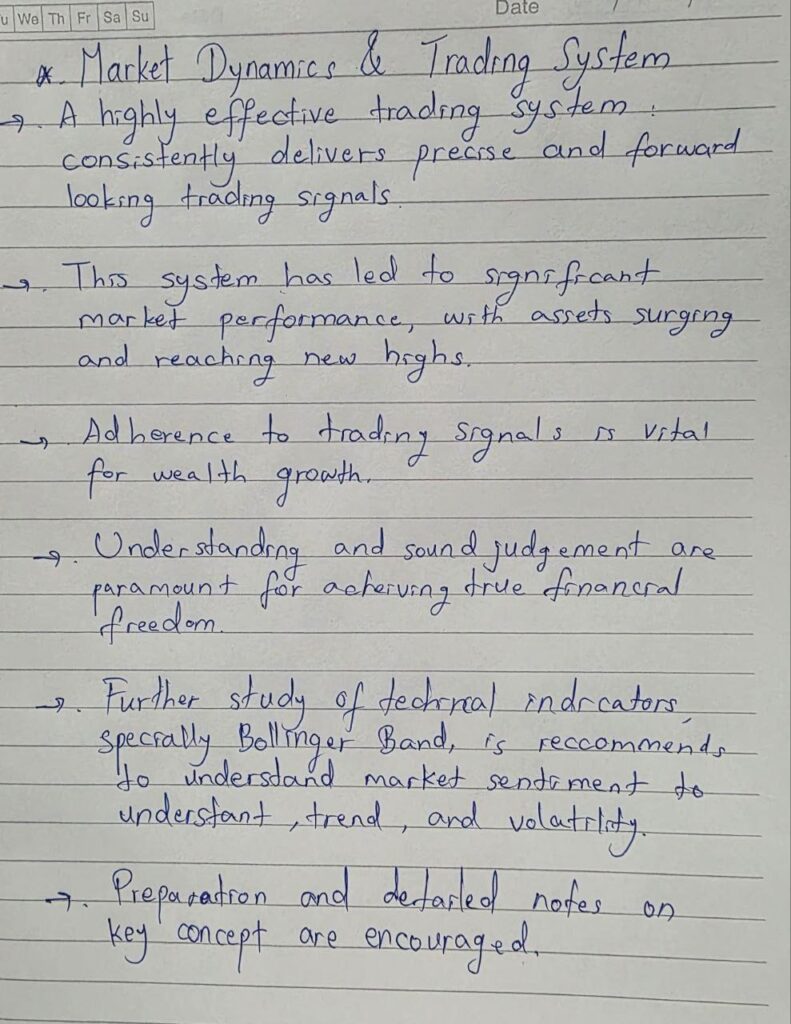 u We Th Fr Sa Su
Date / /
*. Market Dynamics & Trading System
→. A highly effective trading system :
consistently delivers precise and forward
looking trading signals.
→. This system has led to significant
market performance, with assets surging
and reaching new highs.
→ Adherence to trading signals is vital
for wealth growth.
→. Understanding and sound judgement are
paramount for acheiving true financial
freedom.
→. Further study of technical indicators,
specially Bollinger Band, is reccommends
to understand market sentiment to
understant, trend, and volatility.
→. Preparation and detailed notes on
key concept are encouraged.